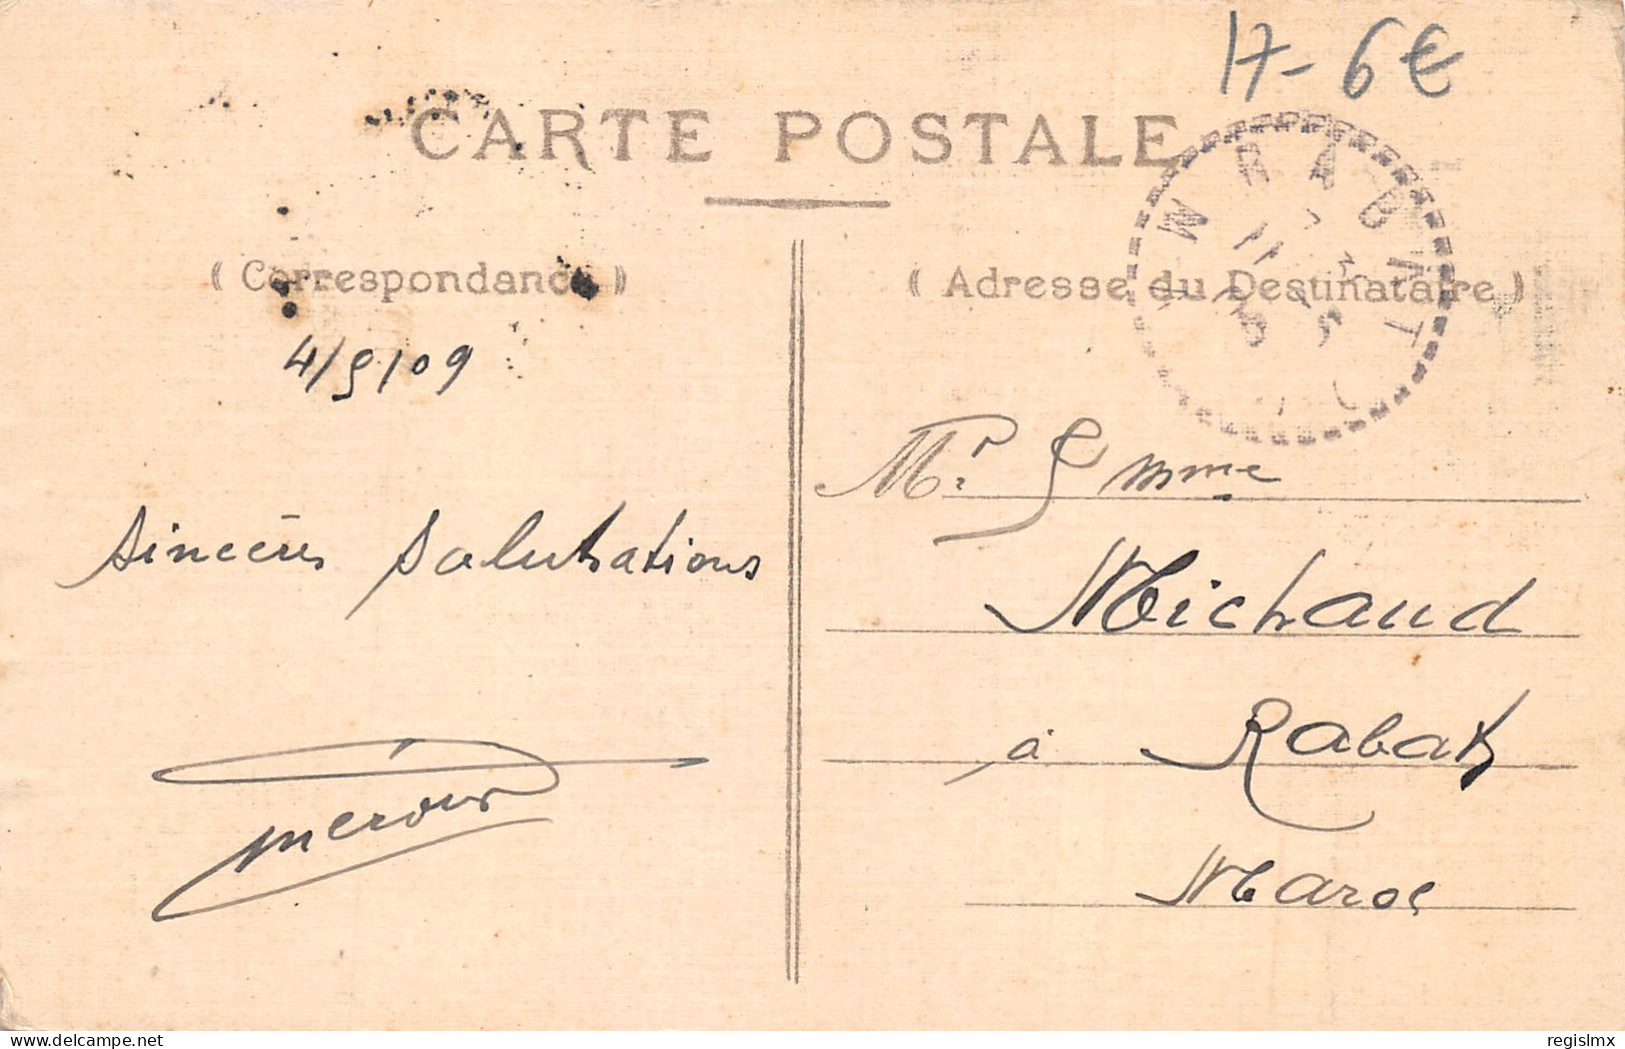 H - 6€
CARTE POSTALE
( Correspondance )
( Adresse du Destinataire )
RABAT
M
11
4/5/09
Mr. & Mme
Sincères Salutations
Michaud
à Rabat
Maroc
delcampe.net
regislmx